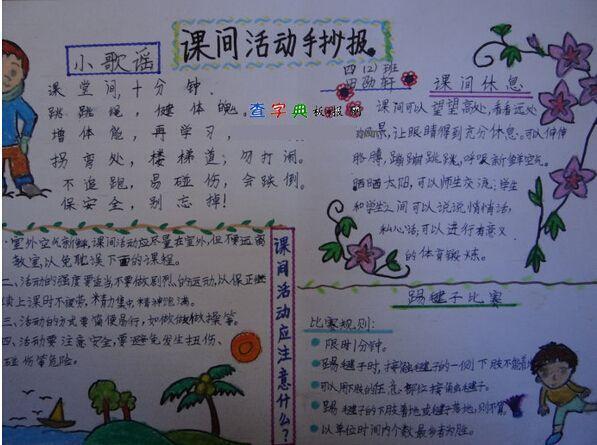 课间活动手抄报。
小歌谣
课堂间,十分钟.
跳跳绳,健体魄。
增体能,再学习,
拐弯处,楼梯道;勿打闹。
不追跑,易碰伤,会跌倒.
保安全,别忘掉!
查字典 板报网
四(2)班
课间休息
课间可以望望高处,看看远处
景,让眼睛得到充分休息。可以伸伸
胳膊,蹦蹦跳跳,呼吸新鲜空气。
晒晒太阳,可以师生交流;学生
和学生之间可以说说悄悄话,
私心话,可以进行有意义
的体育锻炼。
课间活动应注意什么?
室外空气新鲜,课间活动应尽量在室外,但不要远离
教室,以免耽误下面的课程。
二、活动的强度要适当不要做剧烈的运动,以保正继
续上课时不疲劳,精力集中,精神饱满。
三、活动的方式要简便易行,如做做操等。
四、活动要注意安全,要避免发生扭伤、
碰伤等危险。
踢毽子比赛
比赛规则:
限时1分钟。
踢毽子时,接触毽子的一侧下肢不能着地
可以用下肢的任意部位接触毽子.
踢毽子的下肢着地或毽子落地,则不算
以单位时间内个数最多者为胜。